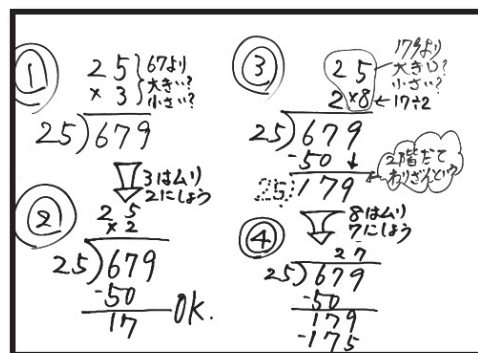 ①
25
×3
67より
大きい?
小さい?
25)679
3はムリ
2にしよう
②
25
×2
25)679
-50
17
OK.
③
25
2×8
179より
大きい?
小さい?
←17÷2
25)679
-50↓
25)179
2階だて
わりざんという
8はムリ
7にしよう
④
27
25)679
-50
179
-175